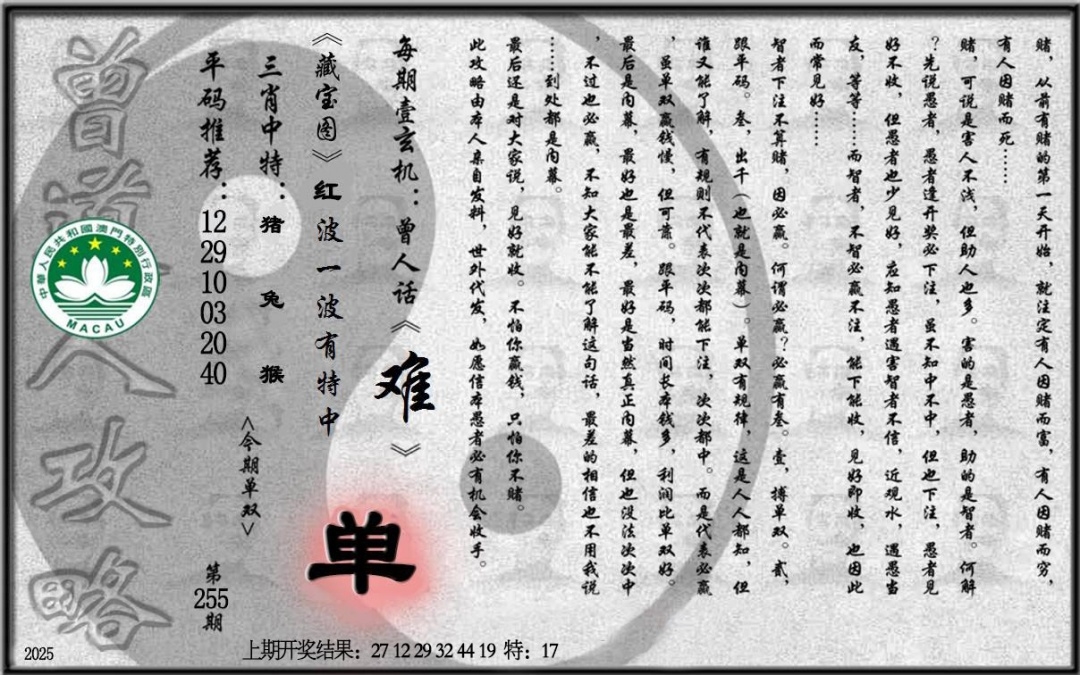 赌，从前有赌的第一天开始，就注定有人因赌而富，有人因赌而穷，
有人因赌而死……
赌，可说是害人不浅，但助人也多。害的是愚者，助的是智者。何解
？先说愚者，愚者逢开奖必下注，虽不知中不中，但也下注，愚者见
好不收，但愚者也少见好，应知愚者遇害智者不信，近观水，遇愚当
友，等等……而智者，不智必赢不注，能下能收，见好即收，也因此
而常见好……
智者下注不算赌，因必赢。何谓必赢？必赢有叁。壹，搏单双。贰，
跟单码。叁，出千（也就是内幕）。单双有规律，这是人人都知，但
谁又能了解，有规则不代表次次都能下注，次次都中。而是代表必赢
，虽单双赢钱慢，但可靠。跟单码，时间长本钱多，利润比单双好。
最后是内幕，最好也是最差，最好是当然真正内幕，但也没法次次中
，不过也必赢，不知大家能不能了解这句话，最差的相信也不用我说
……到处都是内幕。
最后还是对大家说，见好就收。不怕你赢钱，只怕你不赌。
此攻略由本人亲自发料，世外代发，如愿信本愚者必有机会收手。
每期壹玄机：曾人话《难》
《藏宝图》红波一波有特中
单
三肖中特：猪 兔 猴
<今期单双>
平码推荐：12 29 10 03 20 40
第255期
曾道人攻略
中華人民共和國澳門特別行政區
MACAU
2025
上期开奖结果：27 12 29 32 44 19 特：17